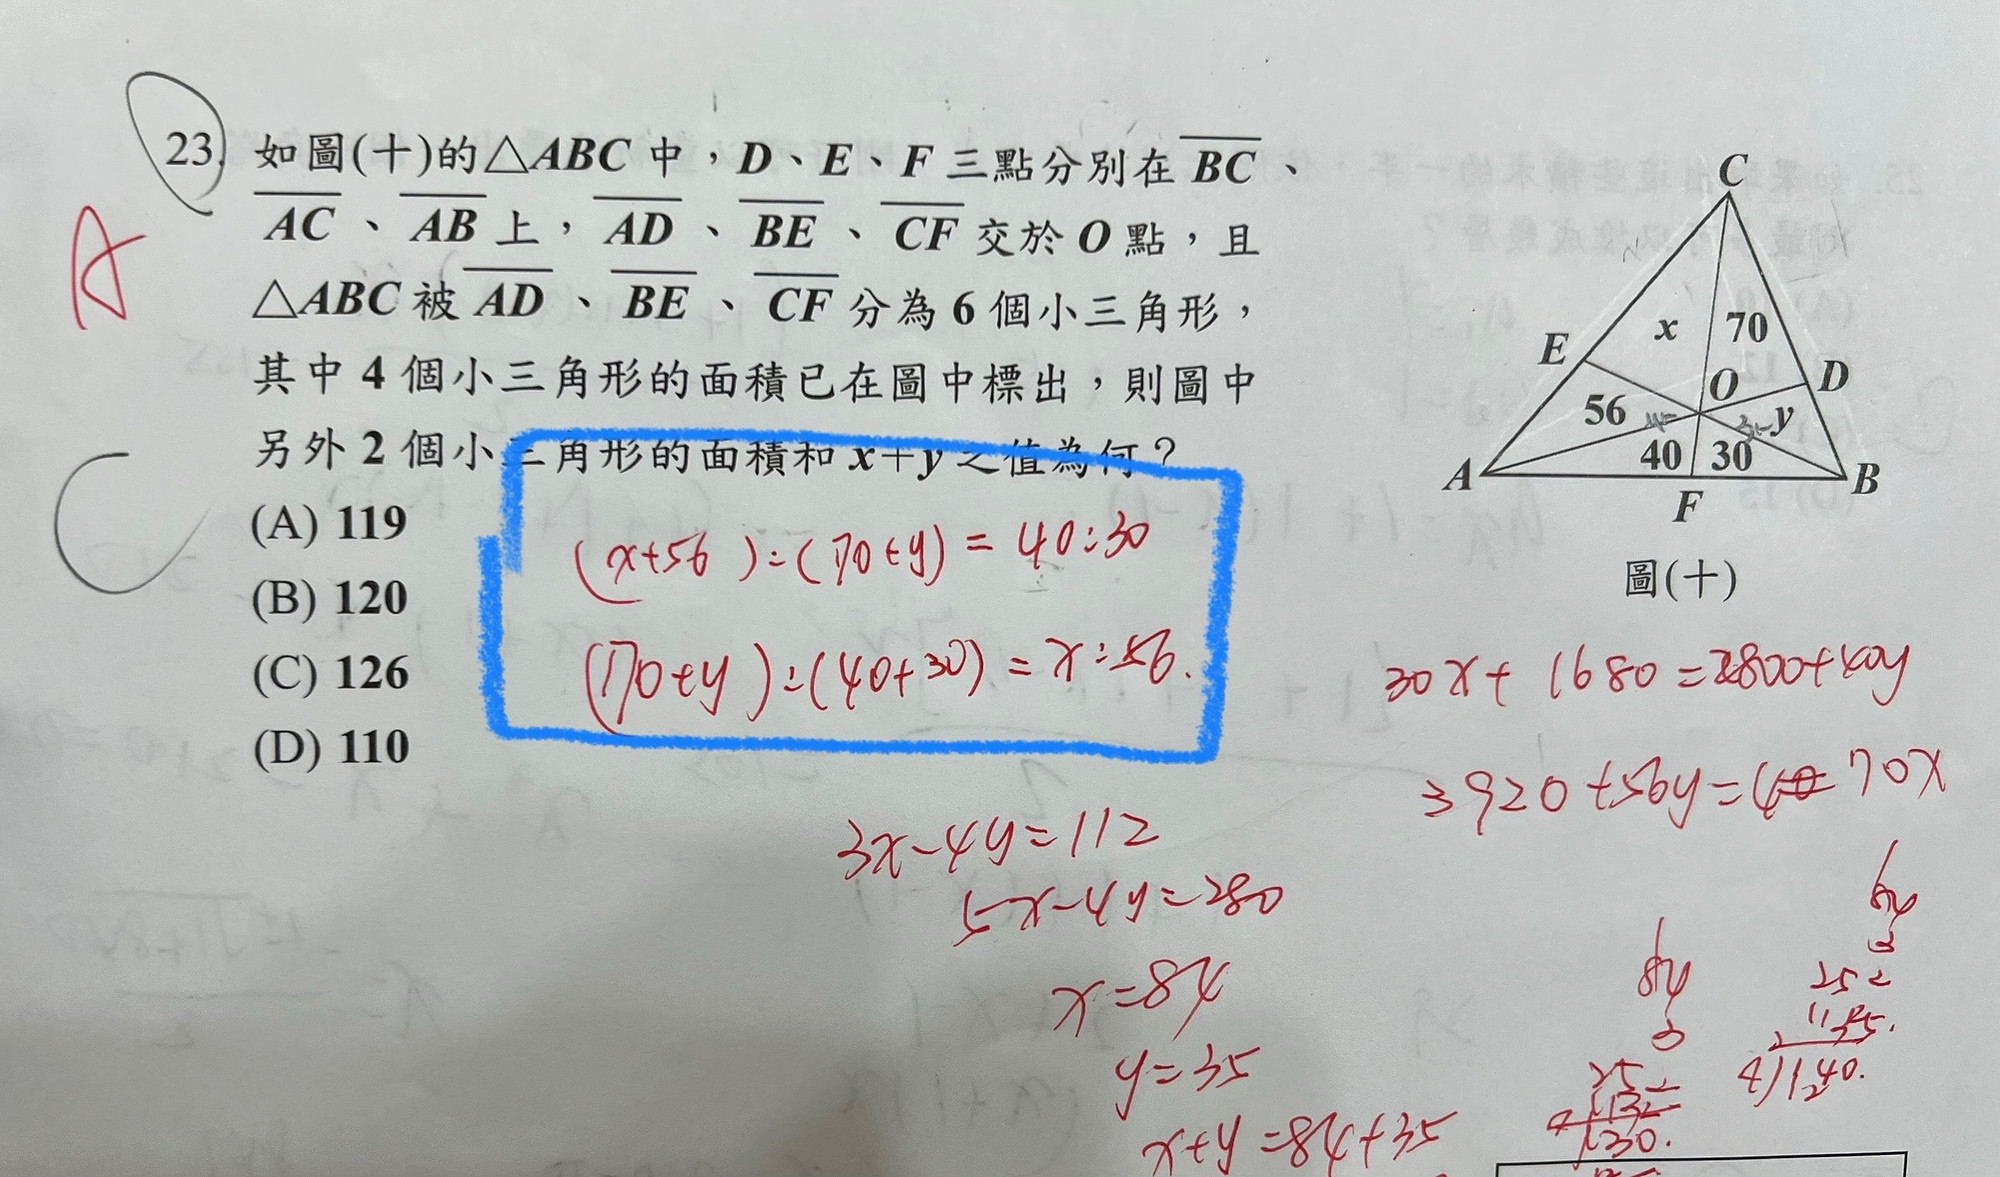 23. 如圖(十)的△ABC中，D、E、F三點分別在BC、
AC、AB上，AD、BE、CF交於O點，且
△ABC被AD、BE、CF分為6個小三角形，
其中4個小三角形的面積已在圖中標出，則圖中
另外2個小三角形的面積和x+y之值為何？
(A) 119
(B) 120
(C) 126
(D) 110
A
C
(x+56):(70+y)=40:30
(70+y):(40+30)=x:56.
C
E
x
70
O
D
56
y
40
30
A
F
B
圖(十)
30x+1680=2800+40y
3920+56y=70x
3x-4y=112
5x-4y=280
x=84
y=35
x+y=84+35
84
3
252
84
3
252
4)140.